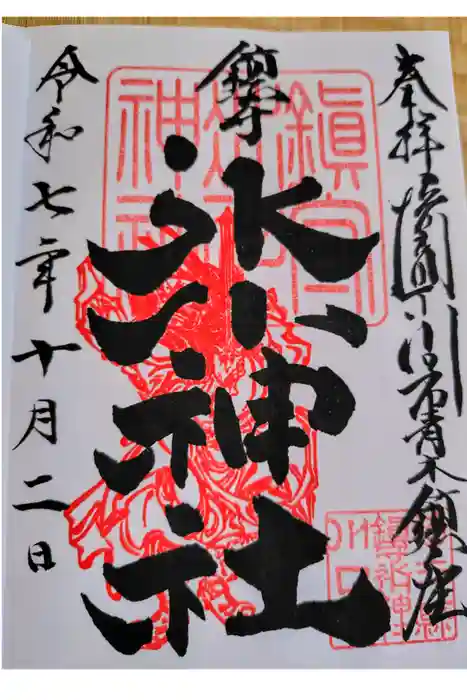 奉拝 埼玉県川口市青木鎮座
鎮守
氷川神社
令和七年十月二日
鎭守
氷川
神社